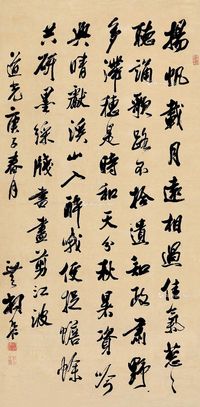 揚帆載月遠相過佳氣葱〻
聽誦歌路不拾遺知政肅野
多滯穗是時和天分秋暑資吟
興晴獻溪山入醉哦便捉蟾蜍
共研墨綵牋書盡剪江波
道光庚子春月